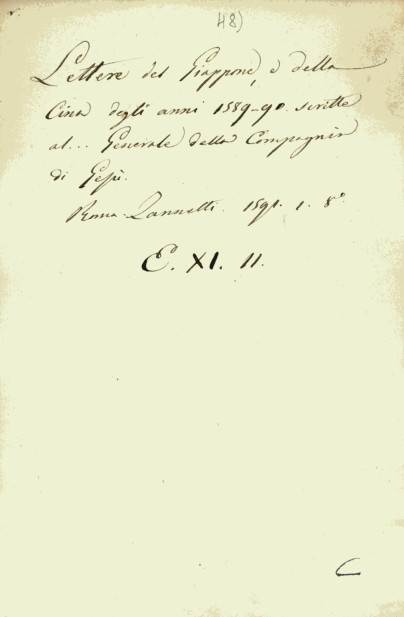 48)
Lettere del Giappone, e della
Cina degli anni 1589-90. scritte
al... Generale della Compagnia
di Gesù.
Roma. Zannetti. 1591. 1. 8°
E. XI. 11.
C